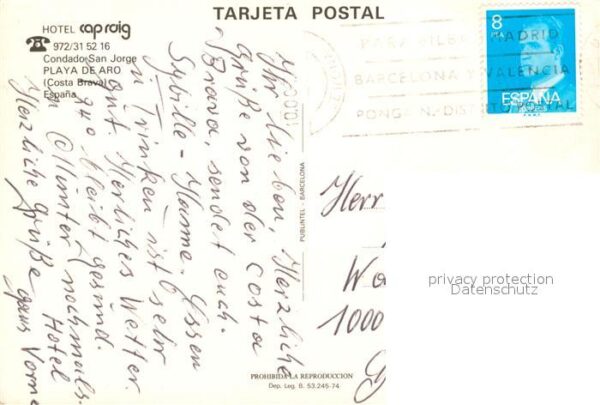 TARJETA POSTAL
HOTEL cap roig
☎ 972/31 52 16
Condado San Jorge
PLAYA DE ARO
(Costa Brava)
España
Ihr Lieben, Herzliche
Grüße von der Costa
Brava, sendet euch.
Sybille - Hanne. Essen
u Trinken ist sehr
Herrliches Wetter.
bleibt gesund.
Münster nochmals
Herzliche Grüße
Hotel
ganz Vorne
PUBLINTEL - BARCELONA
PROHIBIDA LA REPRODUCCIÓN
Dep. Leg. B. 53.245-74
PARA BILBAO MADRID
BARCELONA Y VALENCIA
PONGA N.º DISTRITO POSTAL
8
PTA
ESPAÑA
Herr
1000
privacy protection
Datenschutz